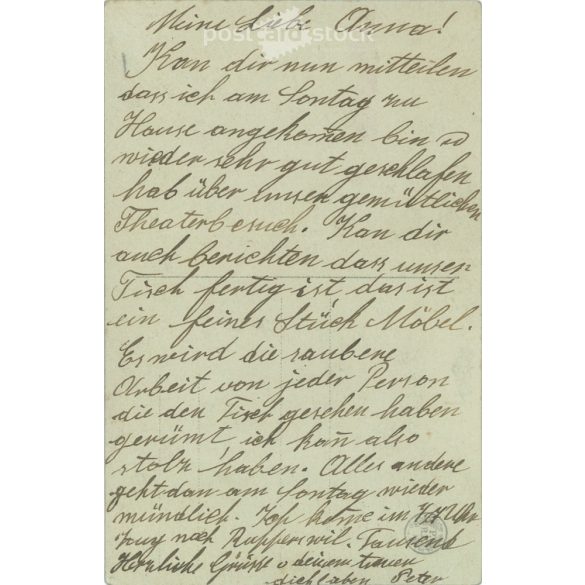 Meine Liebe Anna!
postcard stock
Kan dir nun mitteilen
dass ich am Sontag zu
Hause angekomen bin u
wieder sehr gut geschlafen
hab über unser gemütlichen
Theaterbesuch. Kan dir
auch berichten dass unser
Tisch fertig ist das ist
ein feines Stück Möbel.
Es wird die saubere
Arbeit von jeder Person
die den Tisch gesehen haben
gerümt ich kan also
stolz haben. Alles andere
geht dan am Sontag wieder
mündlich. Ich kome im Uhr
Zug nach Rapperswil. Tausend
Herzliche Grüsse v deinem treuen
dich lieben Peter